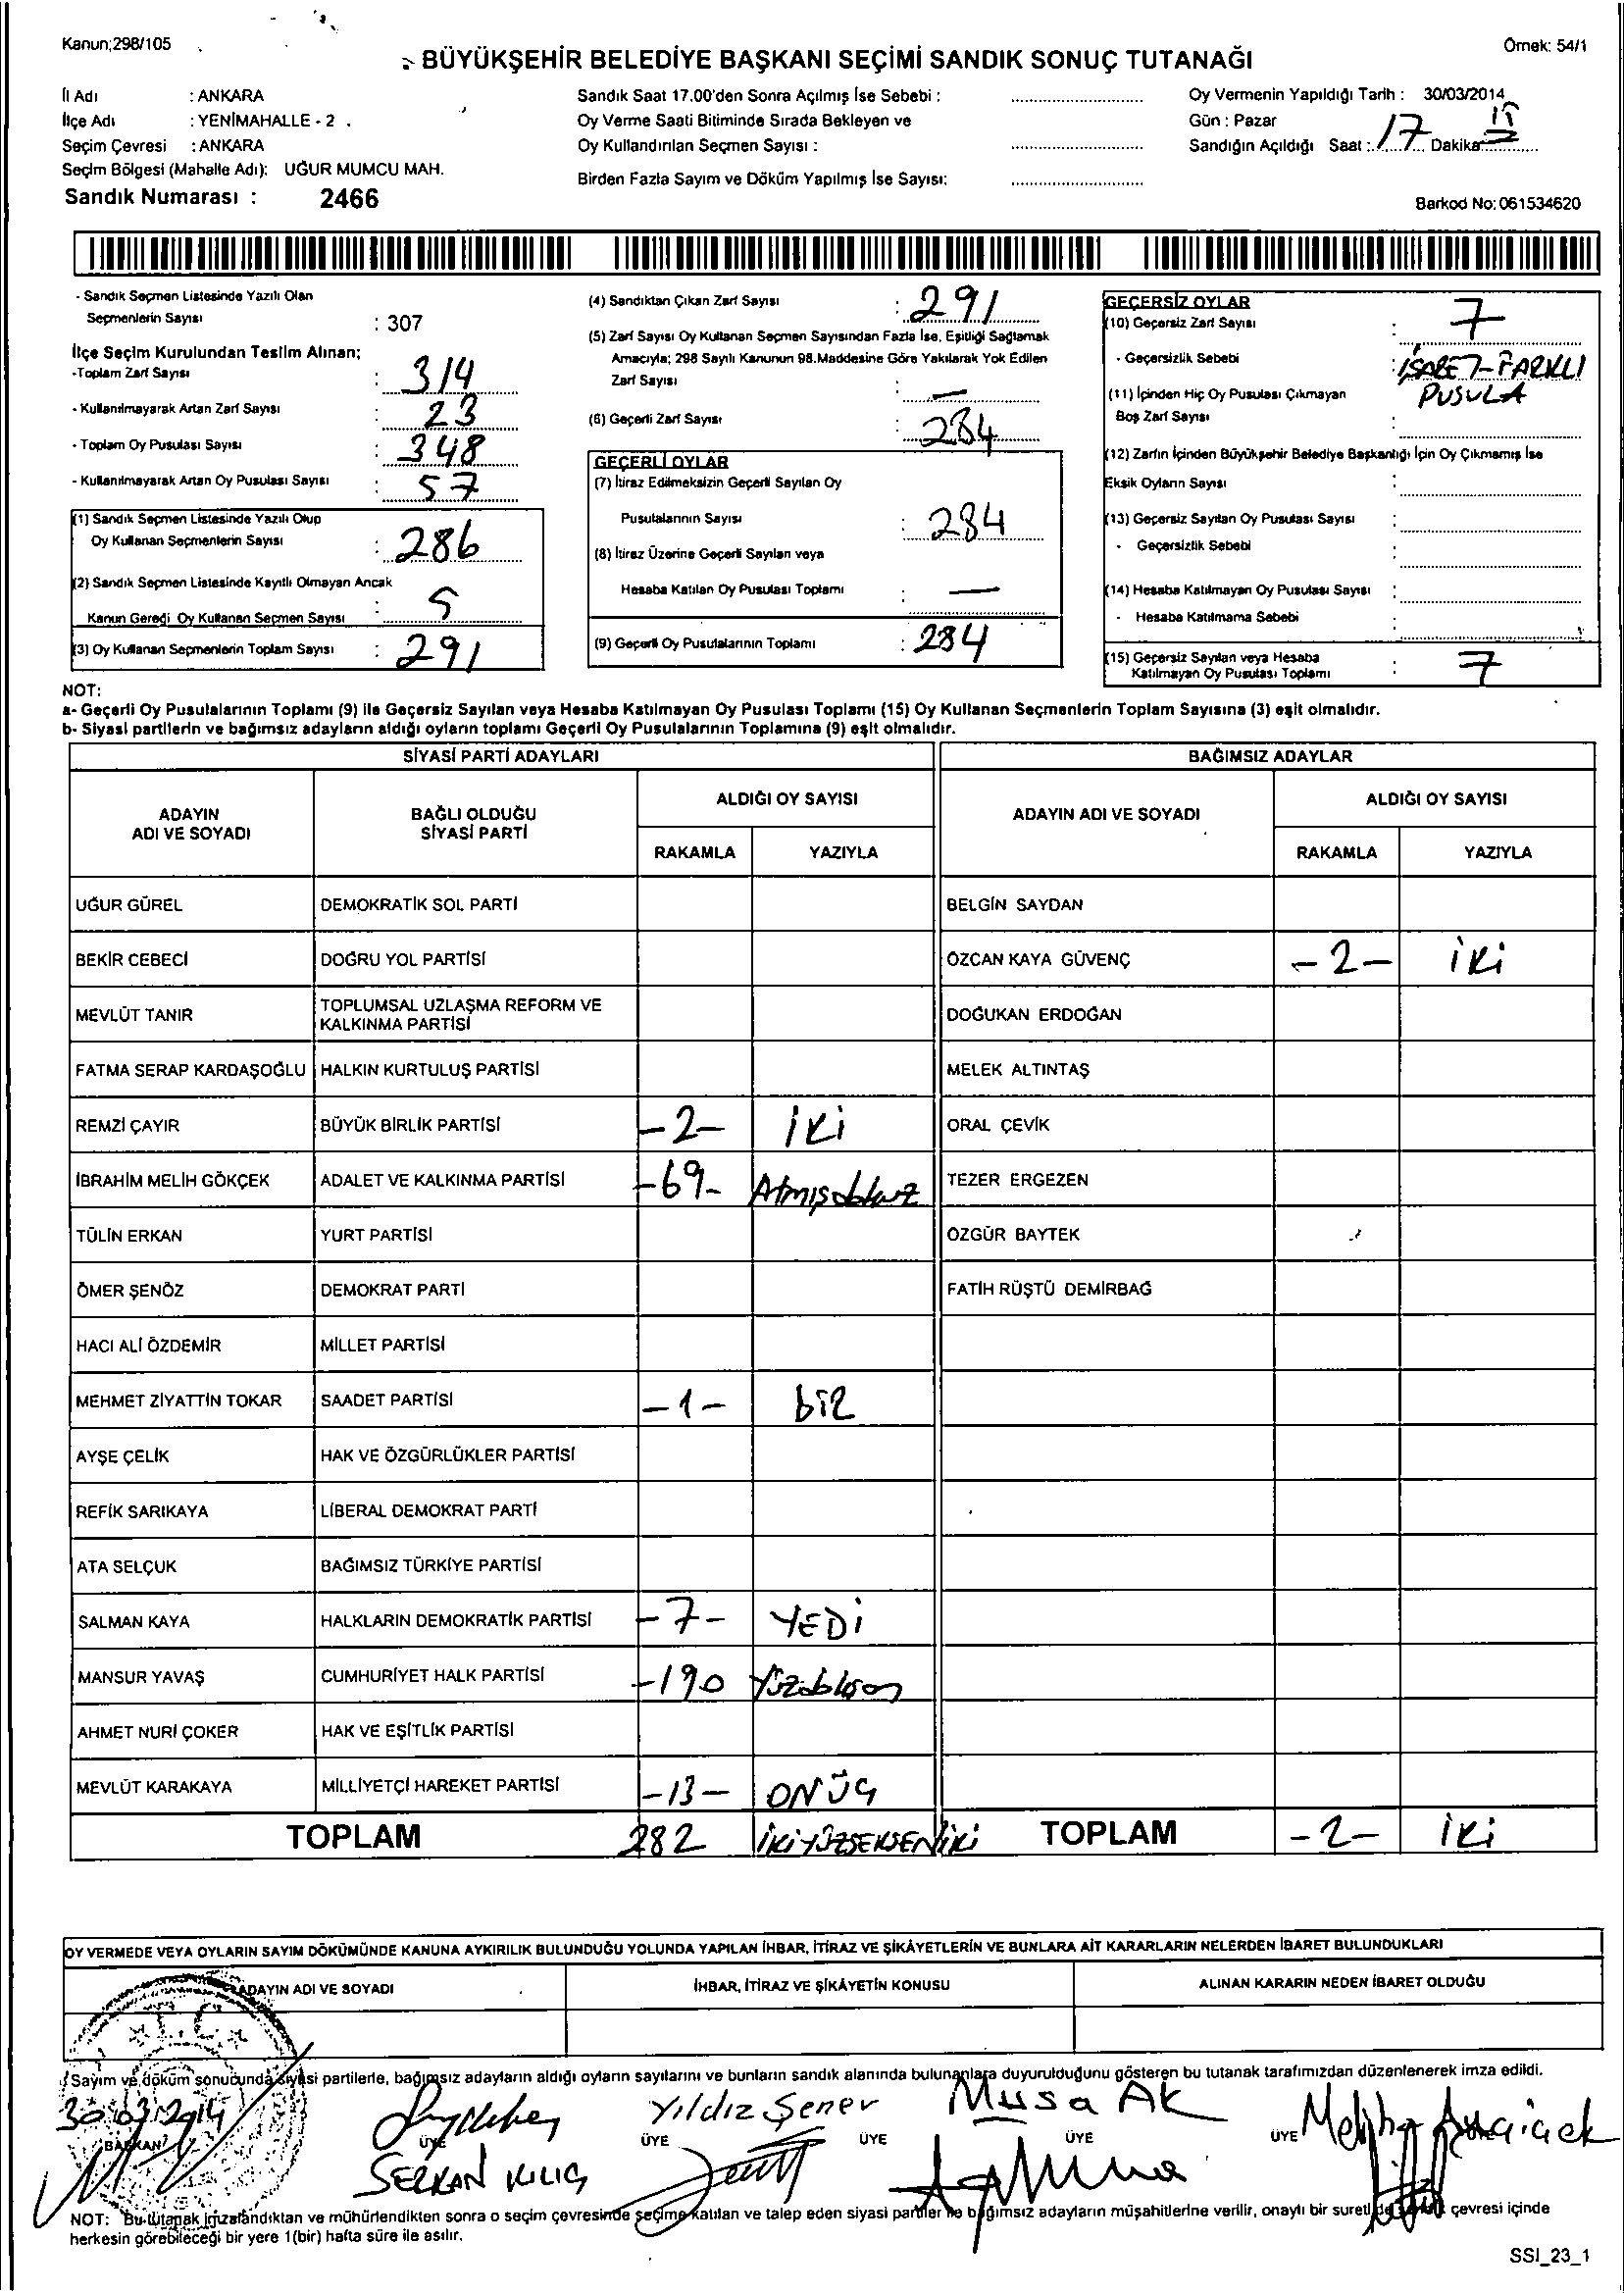 Kanun;298/105
Örnek: 54/1
BÜYÜKŞEHİR BELEDİYE BAŞKANI SEÇİMİ SANDIK SONUÇ TUTANAĞI
İl Adı : ANKARA
İlçe Adı : YENİMAHALLE - 2
Seçim Çevresi : ANKARA
Seçim Bölgesi (Mahalle Adı): UĞUR MUMCU MAH.
Sandık Numarası : 2466
Sandık Saat 17.00'den Sonra Açılmış İse Sebebi :
Oy Verme Saati Bitiminde Sırada Bekleyen ve
Oy Kullandırılan Seçmen Sayısı :
Birden Fazla Sayım ve Döküm Yapılmış İse Sayısı:
Oy Vermenin Yapıldığı Tarih : 30/03/2014
Gün : Pazar
Sandığın Açıldığı Saat : 17 Dakika 15
Barkod No: 061534620
- Sandık Seçmen Listesinde Yazılı Olan
Seçmenlerin Sayısı : 307
İlçe Seçim Kurulundan Teslim Alınan;
-Toplam Zarf Sayısı : 314
- Kullanılmayarak Artan Zarf Sayısı : 23
- Toplam Oy Pusulası Sayısı : 348
- Kullanılmayarak Artan Oy Pusulası Sayısı : 57
(1) Sandık Seçmen Listesinde Yazılı Olup
Oy Kullanan Seçmenlerin Sayısı : 286
(2) Sandık Seçmen Listesinde Kayıtlı Olmayan Ancak
Kanun Gereği Oy Kullanan Seçmen Sayısı : 5
(3) Oy Kullanan Seçmenlerin Toplam Sayısı : 291
(4) Sandıktan Çıkan Zarf Sayısı : 291
(5) Zarf Sayısı Oy Kullanan Seçmen Sayısından Fazla İse, Eşitliği Sağlamak
Amacıyla; 298 Sayılı Kanunun 98.Maddesine Göre Yakılarak Yok Edilen
Zarf Sayısı : —
(6) Geçerli Zarf Sayısı : 284
GEÇERLİ OYLAR
(7) İtiraz Edilmeksizin Geçerli Sayılan Oy
Pusulalarının Sayısı : 284
(8) İtiraz Üzerine Geçerli Sayılan veya
Hesaba Katılan Oy Pusulası Toplamı : —
(9) Geçerli Oy Pusulalarının Toplamı : 284
GEÇERSİZ OYLAR
(10) Geçersiz Zarf Sayısı : 7
- Geçersizlik Sebebi : İŞARET-FARKLI
PUSULA
(11) İçinden Hiç Oy Pusulası Çıkmayan
Boş Zarf Sayısı :
(12) Zarfın İçinden Büyükşehir Belediye Başkanlığı İçin Oy Çıkmamış İse
Eksik Oyların Sayısı :
(13) Geçersiz Sayılan Oy Pusulası Sayısı :
- Geçersizlik Sebebi :
(14) Hesaba Katılmayan Oy Pusulası Sayısı :
- Hesaba Katılmama Sebebi :
(15) Geçersiz Sayılan veya Hesaba
Katılmayan Oy Pusulası Toplamı : 7
NOT:
a- Geçerli Oy Pusulalarının Toplamı (9) ile Geçersiz Sayılan veya Hesaba Katılmayan Oy Pusulası Toplamı (15) Oy Kullanan Seçmenlerin Toplam Sayısına (3) eşit olmalıdır.
b- Siyasi partilerin ve bağımsız adayların aldığı oyların toplamı Geçerli Oy Pusulalarının Toplamına (9) eşit olmalıdır.
SİYASİ PARTİ ADAYLARI
BAĞIMSIZ ADAYLAR
ADAYIN
ADI VE SOYADI
BAĞLI OLDUĞU
SİYASİ PARTİ
ALDIĞI OY SAYISI
RAKAMLA YAZIYLA
ADAYIN ADI VE SOYADI
ALDIĞI OY SAYISI
RAKAMLA YAZIYLA
UĞUR GÜREL DEMOKRATİK SOL PARTİ BELGİN SAYDAN
BEKİR CEBECİ DOĞRU YOL PARTİSİ ÖZCAN KAYA GÜVENÇ -2- iki
MEVLÜT TANIR TOPLUMSAL UZLAŞMA REFORM VE
KALKINMA PARTİSİ DOĞUKAN ERDOĞAN
FATMA SERAP KARDAŞOĞLU HALKIN KURTULUŞ PARTİSİ MELEK ALTINTAŞ
REMZİ ÇAYIR BÜYÜK BİRLİK PARTİSİ -2- iki ORAL ÇEVİK
İBRAHİM MELİH GÖKÇEK ADALET VE KALKINMA PARTİSİ -69- Atmışdokuz TEZER ERGEZEN
TÜLİN ERKAN YURT PARTİSİ ÖZGÜR BAYTEK
ÖMER ŞENÖZ DEMOKRAT PARTİ FATİH RÜŞTÜ DEMİRBAĞ
HACI ALİ ÖZDEMİR MİLLET PARTİSİ
MEHMET ZİYATTİN TOKAR SAADET PARTİSİ -1- bİR
AYŞE ÇELİK HAK VE ÖZGÜRLÜKLER PARTİSİ
REFİK SARIKAYA LİBERAL DEMOKRAT PARTİ
ATA SELÇUK BAĞIMSIZ TÜRKİYE PARTİSİ
SALMAN KAYA HALKLARIN DEMOKRATİK PARTİSİ -7- YEDİ
MANSUR YAVAŞ CUMHURİYET HALK PARTİSİ -190
AHMET NURİ ÇOKER HAK VE EŞİTLİK PARTİSİ
MEVLÜT KARAKAYA MİLLİYETÇİ HAREKET PARTİSİ -13- ONÜÇ
TOPLAM 282 İKİYÜZSEKSENİKİ TOPLAM -2- iki
OY VERMEDE VEYA OYLARIN SAYIM DÖKÜMÜNDE KANUNA AYKIRILIK BULUNDUĞU YOLUNDA YAPILAN İHBAR, İTİRAZ VE ŞİKÂYETLERİN VE BUNLARA AİT KARARLARIN NELERDEN İBARET BULUNDUKLARI
ADAYIN ADI VE SOYADI İHBAR, İTİRAZ VE ŞİKÂYETİN KONUSU ALINAN KARARIN NEDEN İBARET OLDUĞU
T.C.
Sayım ve döküm sonucunda siyasi partilerle, bağımsız adayların aldığı oyların sayılarını ve bunların sandık alanında bulunanlara duyurulduğunu gösteren bu tutanak tarafımızdan düzenlenerek imza edildi.
30/03/2014 Yıldız Şener Musa Ak
BAŞKAN ÜYE ÜYE ÜYE ÜYE ÜYE
SERKAN KILIÇ
NOT: Bu tutanak imzalandıktan ve mühürlendikten sonra o seçim çevresinde seçime katılan ve talep eden siyasi partiler ile bağımsız adayların müşahitlerine verilir, onaylı bir sureti de seçim çevresi içinde
herkesin görebileceği bir yere 1(bir) hafta süre ile asılır.
SSI_23_1